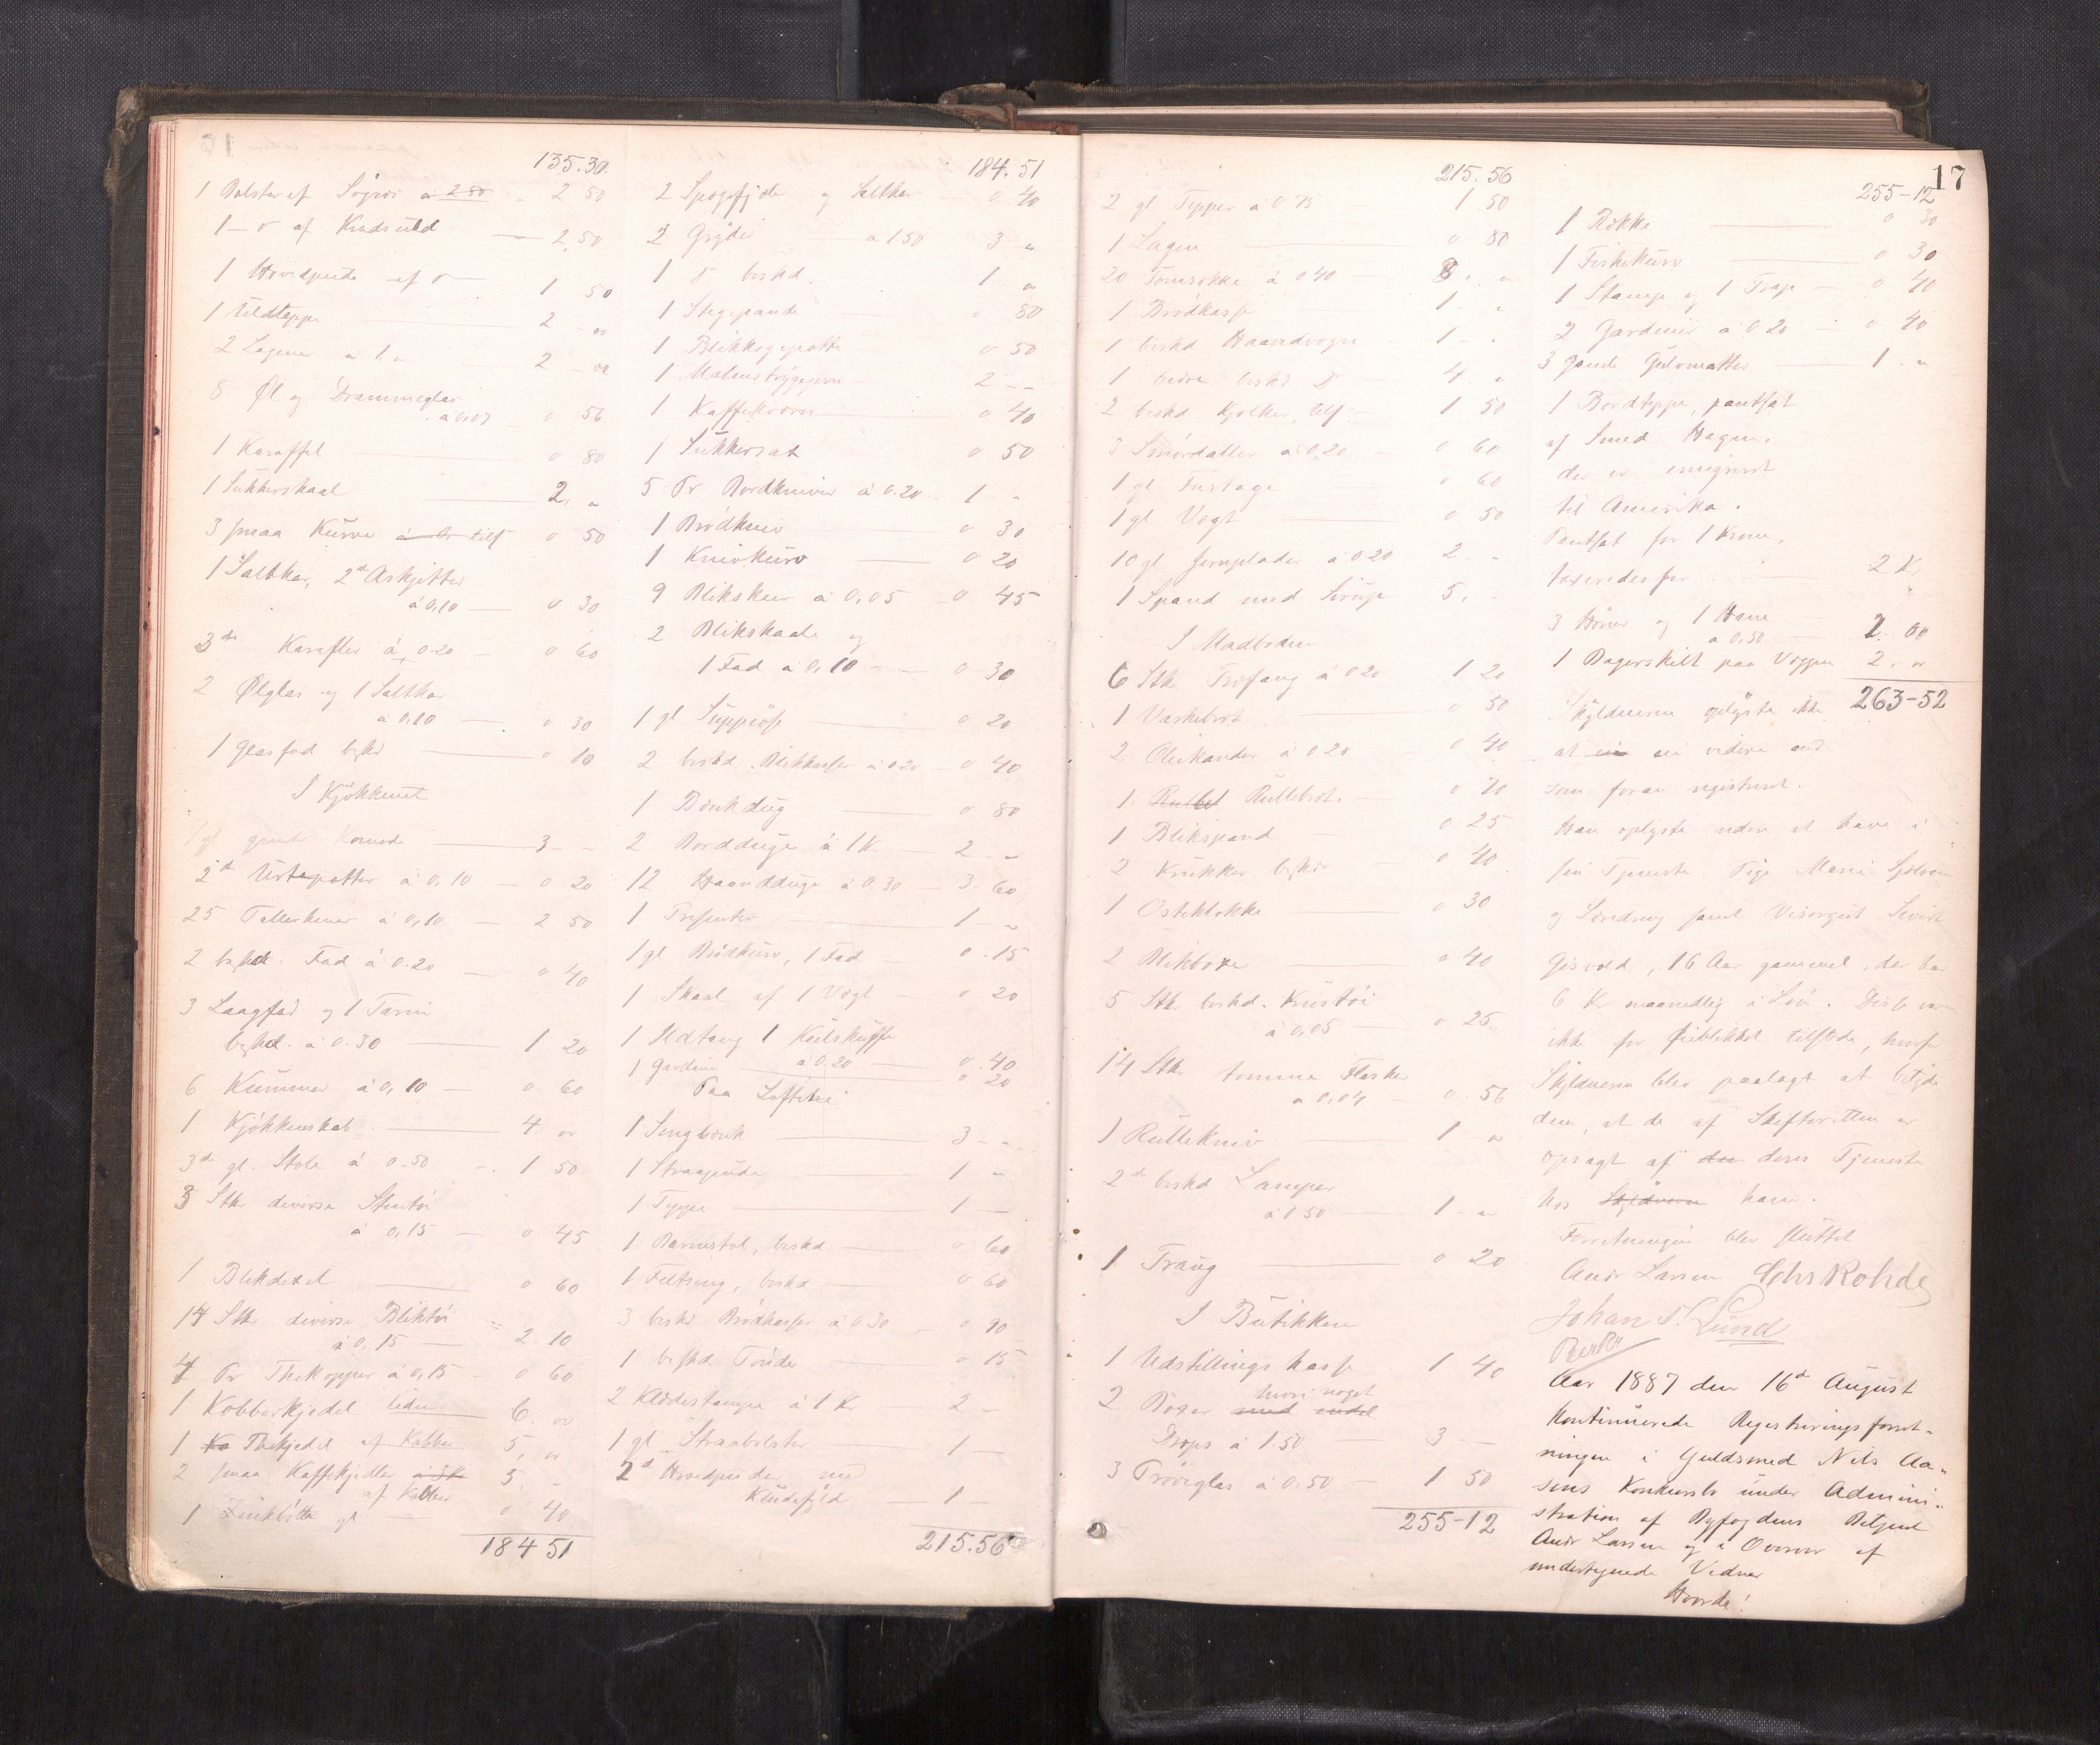 135.30
1 Bolster af Søgræs <s>a 2 50</s> 2 50
1 — o af Krudsuld — 2,50
1 Hovedpude af o — 1 50
1 Uldteppe 2 —
2 Lagener a 1 2 —
8 Øl og Drammeglas
a 0,07 0 56
1 Karaffel 0 80
1 Sukkerskaal 2. „
3 smaa Kurve tils 0 50
1 Saltkar, 2d Askjetter
á 0,10 — 0 30
3de Karafler á 0.20 — 0 60
2 Ølglas og 1 Saltkar
á 0,10 — 0 30
1 Glasfad beskd — 0 10
I Kjøkkenet
1 gl. Komode — 3 —
2d Urtepotter á 0,10 — 0 20
25 Tallerkener á 0,10 — 2 50
2 beskd. Fad á 0.20 — 0 40
3 Laagfad og 1 Tarin
beskd. á 0.30 — 1 20
6 Kummer á 0,10 — 0 60
1 Kjøkkenskab — 4. „
3d gl. Stole á 0.50 — 1 50
3 Stk diverse Stentøi
á 0,15 — 0 45
1 Blikdexel 0 60
14 Stk diverse Bliktøi
á 0,15 — 2.10
4 Pr Thekopper á 0,15 — 0 60
1 Kobberkjedel liden 6. „
1 <s>Ko</s> Thekjedel af Kobber 5, „
2 smaa Kaffekjedler 5. —
af Kobber
1 Zinkbøtte gl — 0 40
184 51
184.51
2 og Saltkar 0 40
2 Gryder a 1 50 3 „
1 o beskd. 1 „
1 Stegepande 0 80
1 Blikkogepotte 0 50
1 Malmstrygejern 2 —
1 Kaffekvern 0 40
1 Sukkersax 0 50
5 Pr Bordkniver á 0.20 — 1 „
1 Brødkniv 0 30
1 Knivkurv — 0 20
9 Blikskeer á 0,05 — 0. 45
2 Blikskaale og
1 Fad á 0,10 — 0 30
1 gl Suppeøse — 0 20
2 beskd. Blikkasser á 0 20 — 0 40
1 Bænkdug — 0 80
2 Bordduge á 1 K — 2 „
12 Haandduge á 0.30 — 3 60
1 Presenter — 1 „
1 gl Brødkurv, 1 Fad — 0.15
1 Skaal af 1 Vægt — 0 20
1 Ildtang 1 Kulskuffe
á 0.20 — 0.40
1 Gardin — 0 20
Paa Loftet
1 Sengbænk — 3 —
1 Straapude 1 „
1 Teppe 1 —
1 Barnestol, beskd — 0 60
1 Feltseng, beskd — 0 60
3 beskd Brødkasser á 0.30 0 90
1 beskd Tønde 0 15
2 Klædestamper á 1 Kr 2 —
1 gl Straabolster — 1 —
2d Hovedpuder med
Kludefyld — 1 —
215.56
17
215.56
2 gl Tepper á 0 75 1 50
1 Lagen 0 80
20 Tomsække á 0 40 8. „
1 Brødkasse 1 „
1 beskd Haandvogn 1 „
1 bedre beskd D 4 „
2 beskd Kjelker, tils 1 50
3 Smørdaller á 0,20 — 0 60
1 gl Fustage 0 60
1 gl Vægt 0 50
10 gl. Jernplader á 0 20 2 „
1 Spand med Sirup 5. —
I Madboden
6 Stk Træfang á 0 20 1 20
1 Vaskebræt 0 50
2 Oliekander á 0 20 — 0 40
1 Rullebræt. 0 70
1 Blikspand 0 25
2 Krukker beskd 0 40
1 Osteklokke 0 30
2 Blikboxe 0 40
5 Stk beskd. Knustøi
á 0,05 — 0 25
14 Stk tomme Flasker
a 0,04 — 0. 56
1 Rullekniv 1 „
2d beskd Lamper
á 0.50 — 1 „
1 Traug 0 20
I Butikken
1 Udstillingskasse 1 40
2 Boxer <s>med</s> hvori noget
Drops á 1.50 — 3 —
3 Prøveglas á 0.50 — 1 50
255-12
255-12
1 Rokke 0 30
1 Fiskekurv 0 30
1 Stamp og 1 Trap 0 40
2 Gardiner á 0 20 0 40
3 gamle Gulvmatter 1 „
1 Bordteppe, pantsat
af Smed Hagen,
der er emigreret
til Amerika.
Pantsat for 1 Krone,
taxeredes for 2 K.
3 Høner og 1 Hane
a 0,50 2. 00
1 Bagerskilt paa Veggen 2. „
263-52
Skyldneren oplyste ikke
at eie videre end
som foran registreret.
Han oplyste uden at have i
sin Tjeneste Pige Marie
og Læredreng samt Visergut Sivert
Gisvold, 16 Aar gammel, der har
6 Kr maanedlig i Løn. Disse vare
ikke for Øieblikket tilstede, hvorfor
Skyldneren blev paalagt at betyde
dem, at de af Skifteretten er
opsagt af <s>den</s> deres Tjeneste
hos <s>Skyldneren</s> ham.
Forretningen blev sluttet
Andr Larsen Chr Rohde
Johan S. Lund
Aar 1887 den 16d August
kontinuerede Registreringsforret-
ningen i Guldsmed Nils Aa-
sens Konkursbo under Admini-
stration af Byfogdens Betjent
Andr Larsen og i Overvær af
undertegnede Vidner
Hvorda!